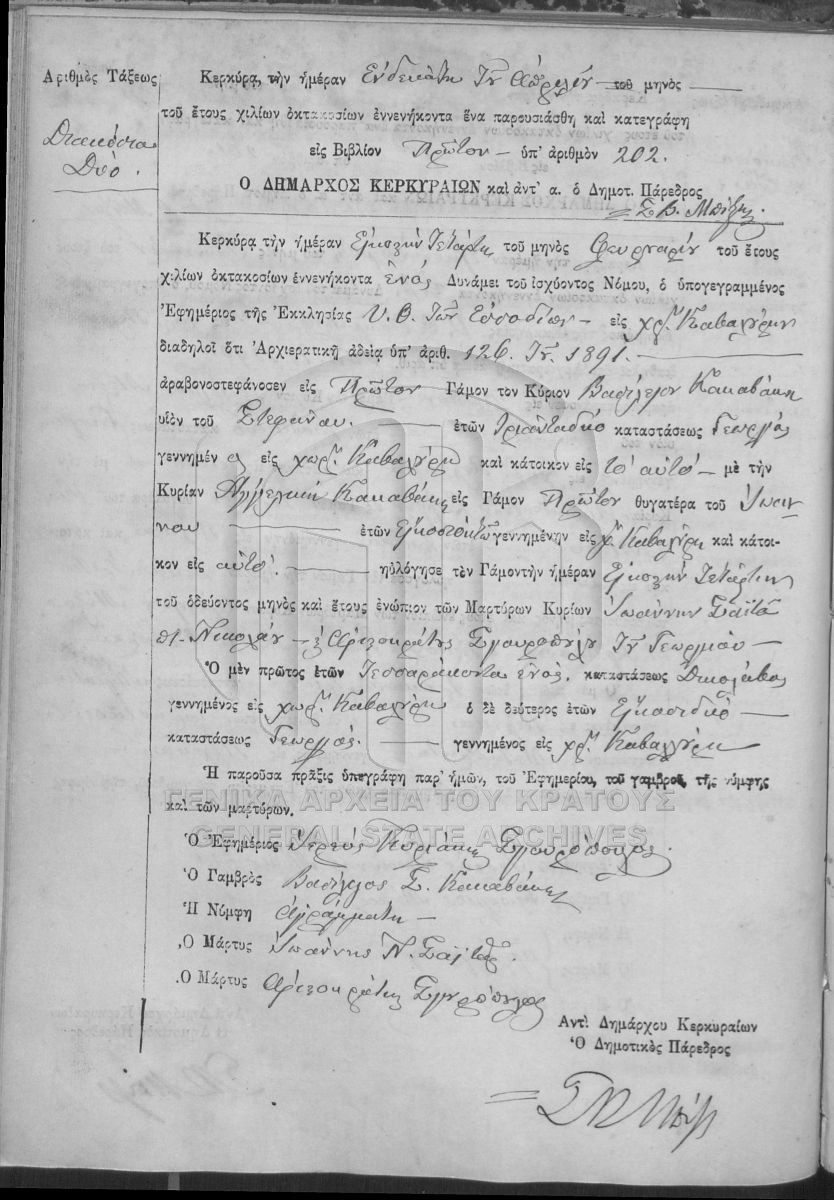 Ἀριθμὸς Τάξεως
Διακόσια
Δύο.
Κερκύρα, τὴν ἡμέραν Ἑνδεκάτη τοῦ Ἀπριλίου τοῦ μηνὸς
τοῦ ἔτους χιλίων ὀκτακοσίων ἐννενήκοντα ἕνα παρουσιάσθη καὶ κατεγράφη
εἰς Βιβλίον Πρῶτον ὑπ' ἀριθμὸν 202.
Ο ΔΗΜΑΡΧΟΣ ΚΕΡΚΥΡΑΙΩΝ καὶ ἀντ' α. ὁ Δημοτ. Πάρεδρος
Σ. Β.
Κερκύρα τὴν ἡμέραν Εἰκοστὴν Τετάρτη τοῦ μηνὸς Φευρουαρίου τοῦ ἔτους
χιλίων ὀκτακοσίων ἐννενήκοντα ἑνός Δυνάμει τοῦ ἰσχύοντος Νόμου, ὁ ὑπογεγραμμένος
Ἐφημέριος τῆς Ἐκκλησίας Υ. Θ. τῶν Εἰσοδίων εἰς χωρ. Καβαλλύρη
διαδηλοῖ ὅτι Ἀρχιερατικῇ ἀδείᾳ ὑπ' ἀριθ. 126. 1891.
ἀραβονοστεφάνοσεν εἰς Πρῶτον Γάμον τον Κύριον Βασίλειον Κακαβάκη
υἱὸν τοῦ Στεφάνου. ἐτῶν τριανταδύο καταστάσεως Γεωργός
γεννημέν ος εἰς χωρ. Καβαλλύρη καὶ κάτοικον εἰς τὸ αὐτὸ μὲ τὴν
Κυρίαν Ἀγγελικὴ Κακαβάκη εἰς Γάμον Πρῶτον θυγατέρα τοῦ Ἰωάν
νου ἐτῶν Εἰκοσιοκτὼ γεννημένην εἰς χ. Καβαλλύρη καὶ κάτοι-
κον εἰς αὐτό. ηὐλόγησε τὸν Γάμον τὴν ἡμέραν Εἰκοστὴν Τετάρτην
τοῦ ὁδεύοντος μηνὸς καὶ ἔτους ἐνώπιον τῶν Μαρτύρων Κυρίων Ἰωάννην Σαϊτᾶ
Νικολάου Ἀριστοκράτης Σγουρόπουλου τοῦ Γεωργίου
Ὁ μὲν πρῶτος ἐτῶν Τεσσαράκοντα ἑνός. καταστάσεως
γεννημένος εἰς χωρ. Καβαλλύρη ὁ δὲ δεύτερος ἐτῶν Εἰκοσιδύο
καταστάσεως Γεωργός. γεννημένος εἰς χωρ. Καβαλλύρη
Ἡ παροῦσα πρᾶξις ὑπεγράφη παρ' ἡμῶν, τοῦ Ἐφημερίου, τοῦ γαμβροῦ, τῆς νύμφης
καὶ τῶν μαρτύρων.
ΓΕΝΙΚΑ ΑΡΧΕΙΑ ΤΟΥ ΚΡΑΤΟΥΣ
GENERAL STATE ARCHIVES
Ὁ Ἐφημέριος Ἱερεὺς Κυριάκης Σγουρόπουλος.
Ὁ Γαμβρὸς Βασίλειος Σ. Κακαβάκης
Ἡ Νύμφη ἀγράμματη
Ὁ Μάρτυς Ἰωάννης Ν. Σαϊτᾶς.
Ὁ Μάρτυς Ἀριστοκράτης Σγουρόπουλος
Αντὶ Δημάρχου Κερκυραίων
Ὁ Δημοτικὸς Πάρεδρος